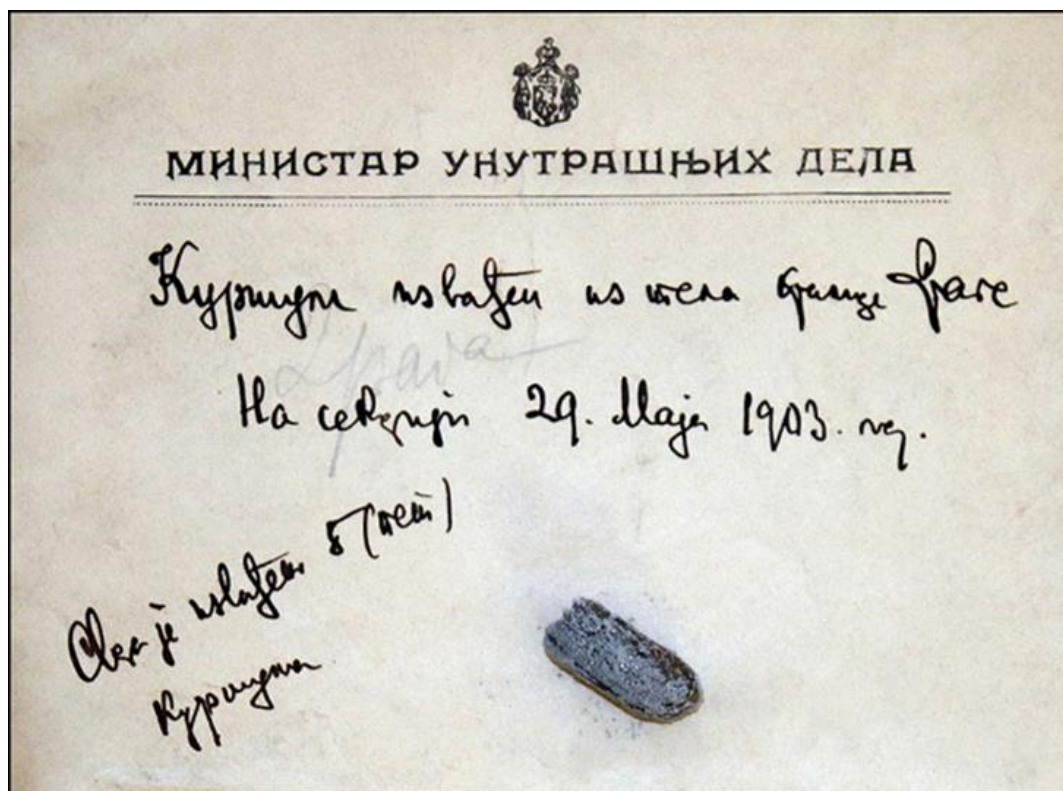 МИНИСТАР УНУТРАШЊИХ ДЕЛА
Куршум извађен из тела краљице Драге
Драга
На секцији 29. Маја 1903. год.
Свега је извађено 5 (пет)
куршума